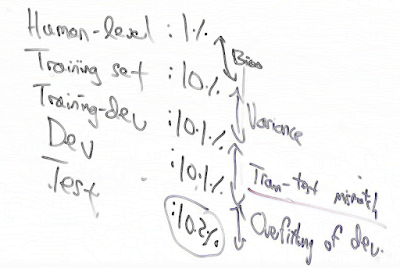 Human-level : 1%
Bias
Training set : 10%
Training-dev : 10.1%
Variance
Dev : 10.1%
Train-test mismatch
Test : 10.2%
Overfitting of dev.